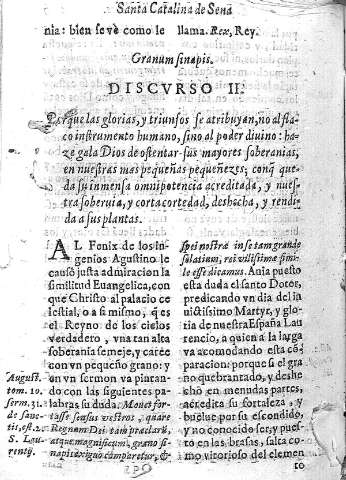 Santa Catalina de Sena
nia: bien se vè como le llama. Rex, Rey.
Granum sinapis.
DISCVRSO II.
Porque las glorias, y triunfos se atribuyan, no al fla
co instrumento humano, sino al poder diuino: ha
ze gala Dios de ostentar sus mayores soberanias,
en nuestras mas pequeñas pequeñezes; conq̃ que
da su inmensa omnipotencia acreditada, y nues
tra soberuia, y corta cortedad, deshecha, y rendi
da a sus plantas.
AL Fenix de los in
genios Agustino le
causò justa admiracion la
similitud Euangelica, con
que Christo al palacio ce
lestial, o a si mismo, q̃ es
el Reyno de los cielos
verdadero, vna tan alta
soberania semeje, y caree
con vn pequeño grano: y
en vn sermon va pintan-
do con las siguientes pa
labras su duda. Monet for-
tasse sensus vestros, quare
Regnum Dei tam præclarũ,
atque magnificum, grano si
napis exiguo comparetur, &
August.
tom. 10.
serm. 31.
de sanc-
tis, est. 2.
S. Lau-
rentij.
spei nostræ in se tam grande
solatium, rei vilissimæ simi-
le esse dicamus. Auia puesto
esta duda el santo Dotor,
predicando vn dia del in
uictissimo Martyr, y glo
ria de nuestra España Lau
rencio, a quien a la larga
va acomodando esta cõ-
paracion: porque si el gra
no quebrantado, y deshe
cho en menudas partes,
acredita su fortaleza, y
buelue por su escondido,
y no conocido ser; y pues-
to en las brasas, salta co-
mo vitorioso del elemen
to